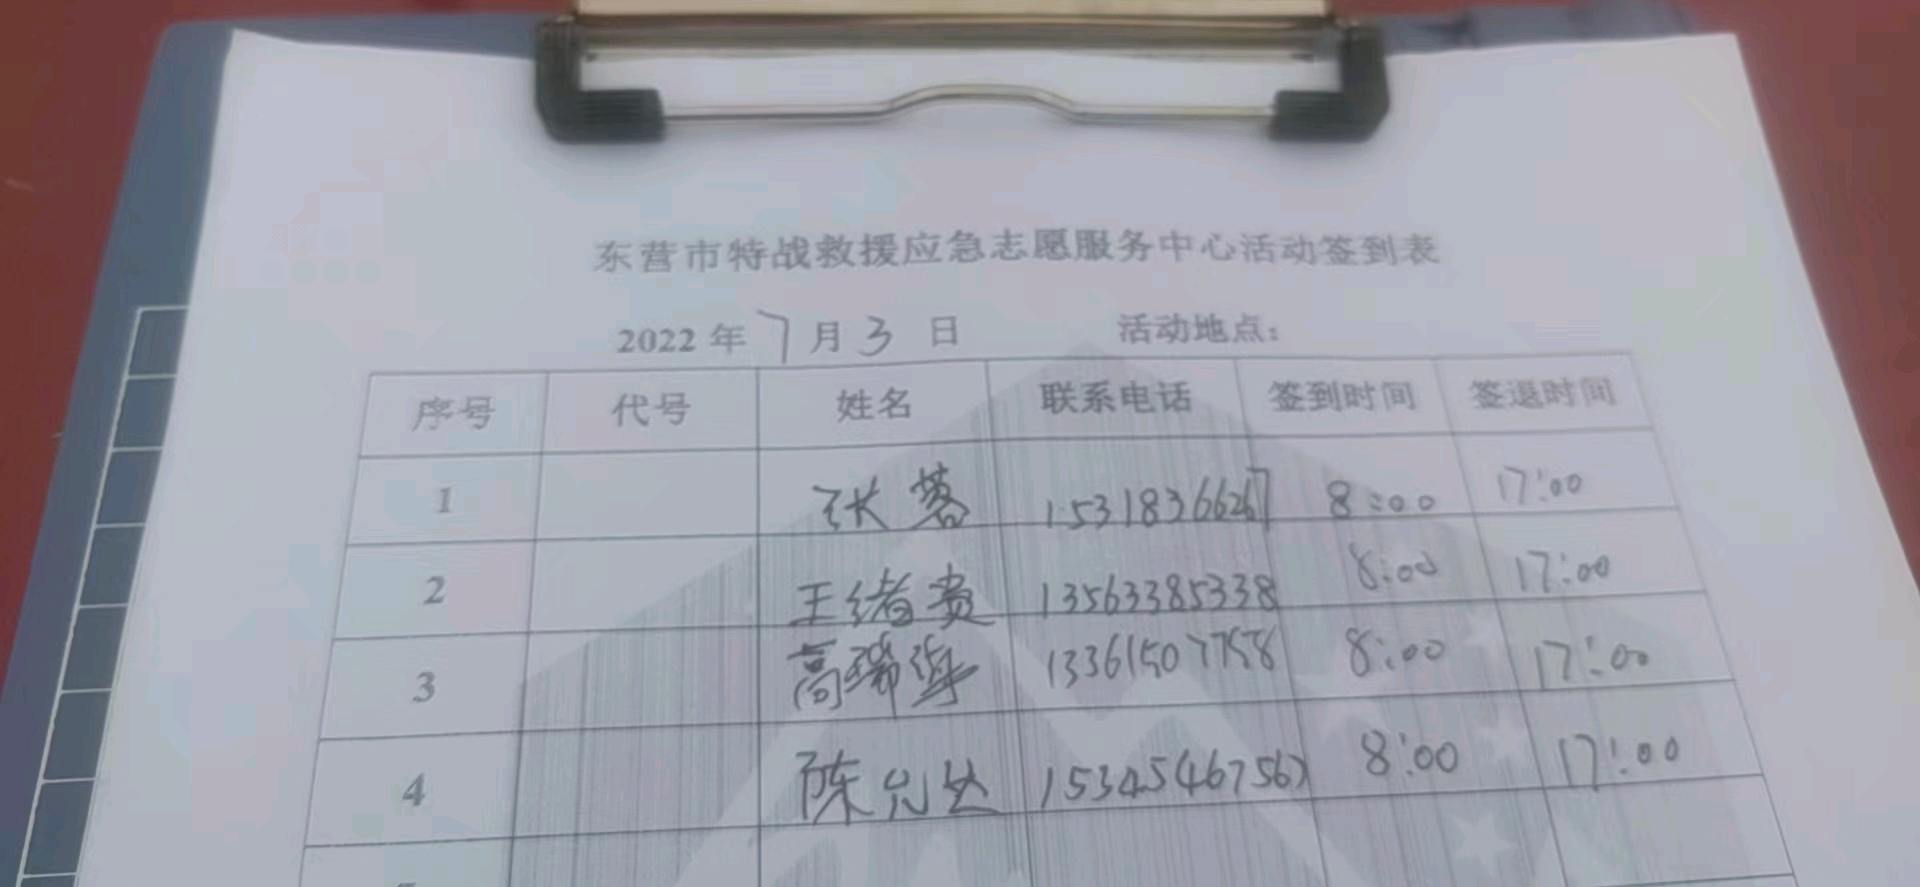 东营市特战救援应急志愿服务中心活动签到表
2022 年 7 月 3 日 活动地点：
序号 代号 姓名 联系电话 签到时间 签退时间
1 张蓉 15318366267 8:00 17:00
2 王绪贵 13563385338 8:00 17:00
3 高瑞 13361507758 8:00 17:00
4 陈允 15345467567 8:00 17:00